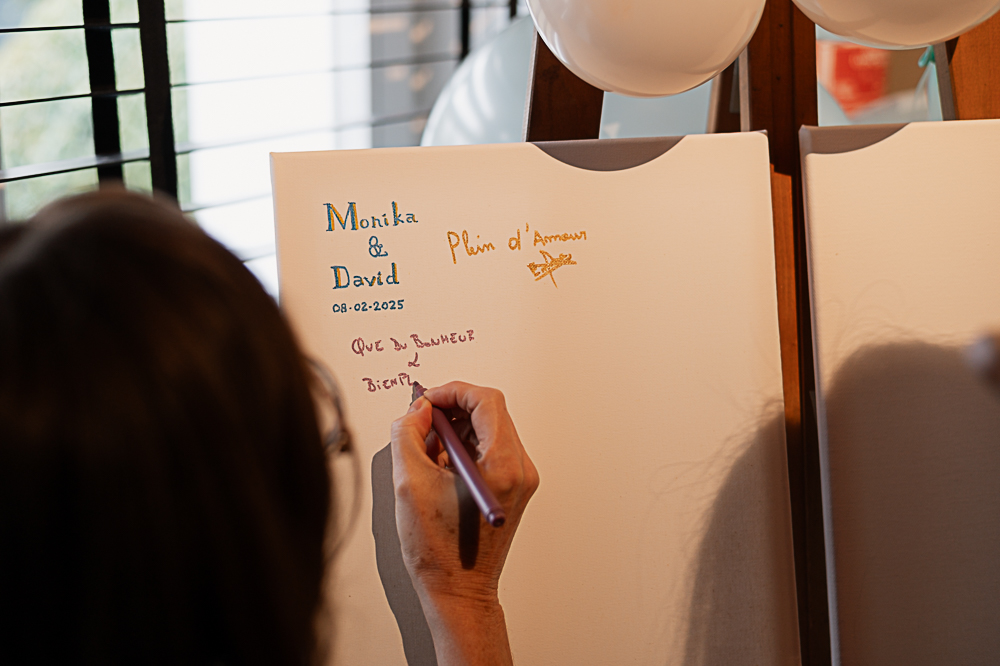 Monika
&
David
08-02-2025
Plein d'Amour
QUE DU BONHEUR
&
BIEN